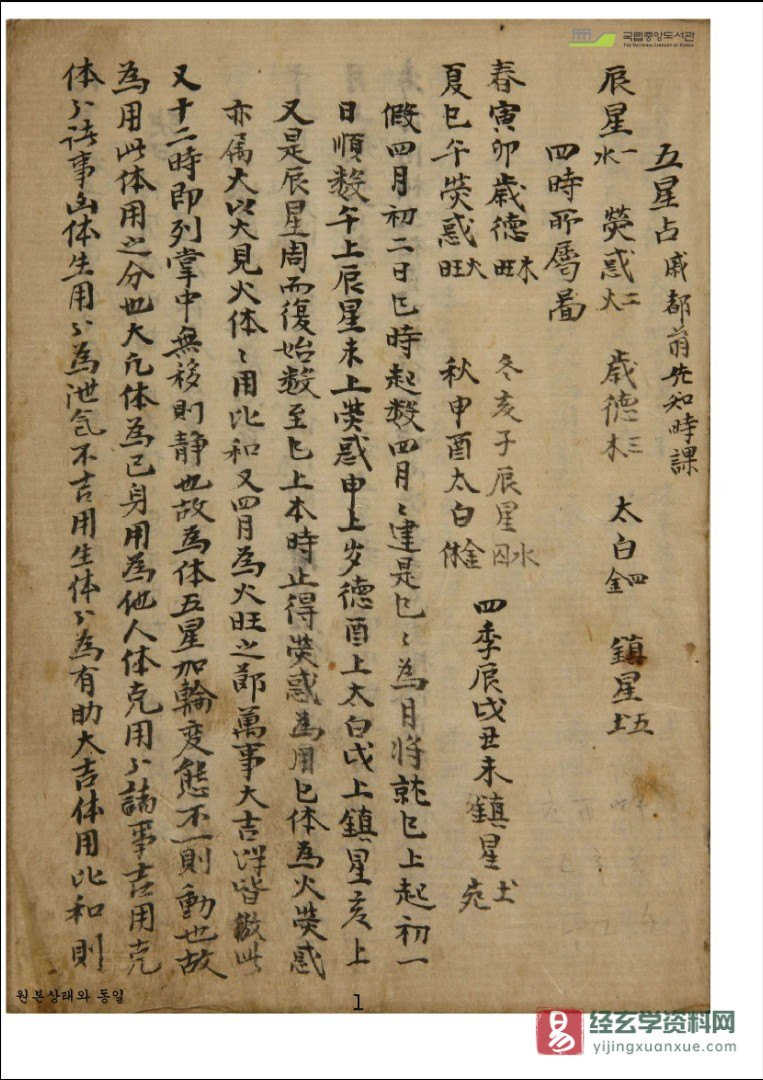 국립중앙도서관
THE NATIONAL LIBRARY OF KOREA
五星占 戚都前先知時課
辰星 一水 熒惑 二火 歲德 三木 太白 四金 鎮星 五土
四時所屬啚
春寅卯歲德 木旺 冬亥子辰星 水囚 四季辰戌丑未鎮星 土
夏巳午熒惑 火旺 秋申酉太白 金休
假四月初二日巳時起数四月〻建是巳〻為月將就巳上起初一
日順数午上辰星未上熒惑申上岁德酉上太白戌上鎮星亥上
又是辰星周而復始数至巳上本時止得熒惑為用巳体為火熒惑
亦属火以火見火体〻用比和又四月為火旺之節萬事大吉詳皆倣此
又十二時即列掌中無移則静也故為体五星加輪变態不一則動也故
為用此体用之分也大凢体為己身用為他人体克用〻謀事吉用克
体〻诸事凶体生用〻為泄气不吉用生体〻為有助大吉体用比和則
원본상태와 동일
1
易
经玄学资料网
yijingxuanxue.com